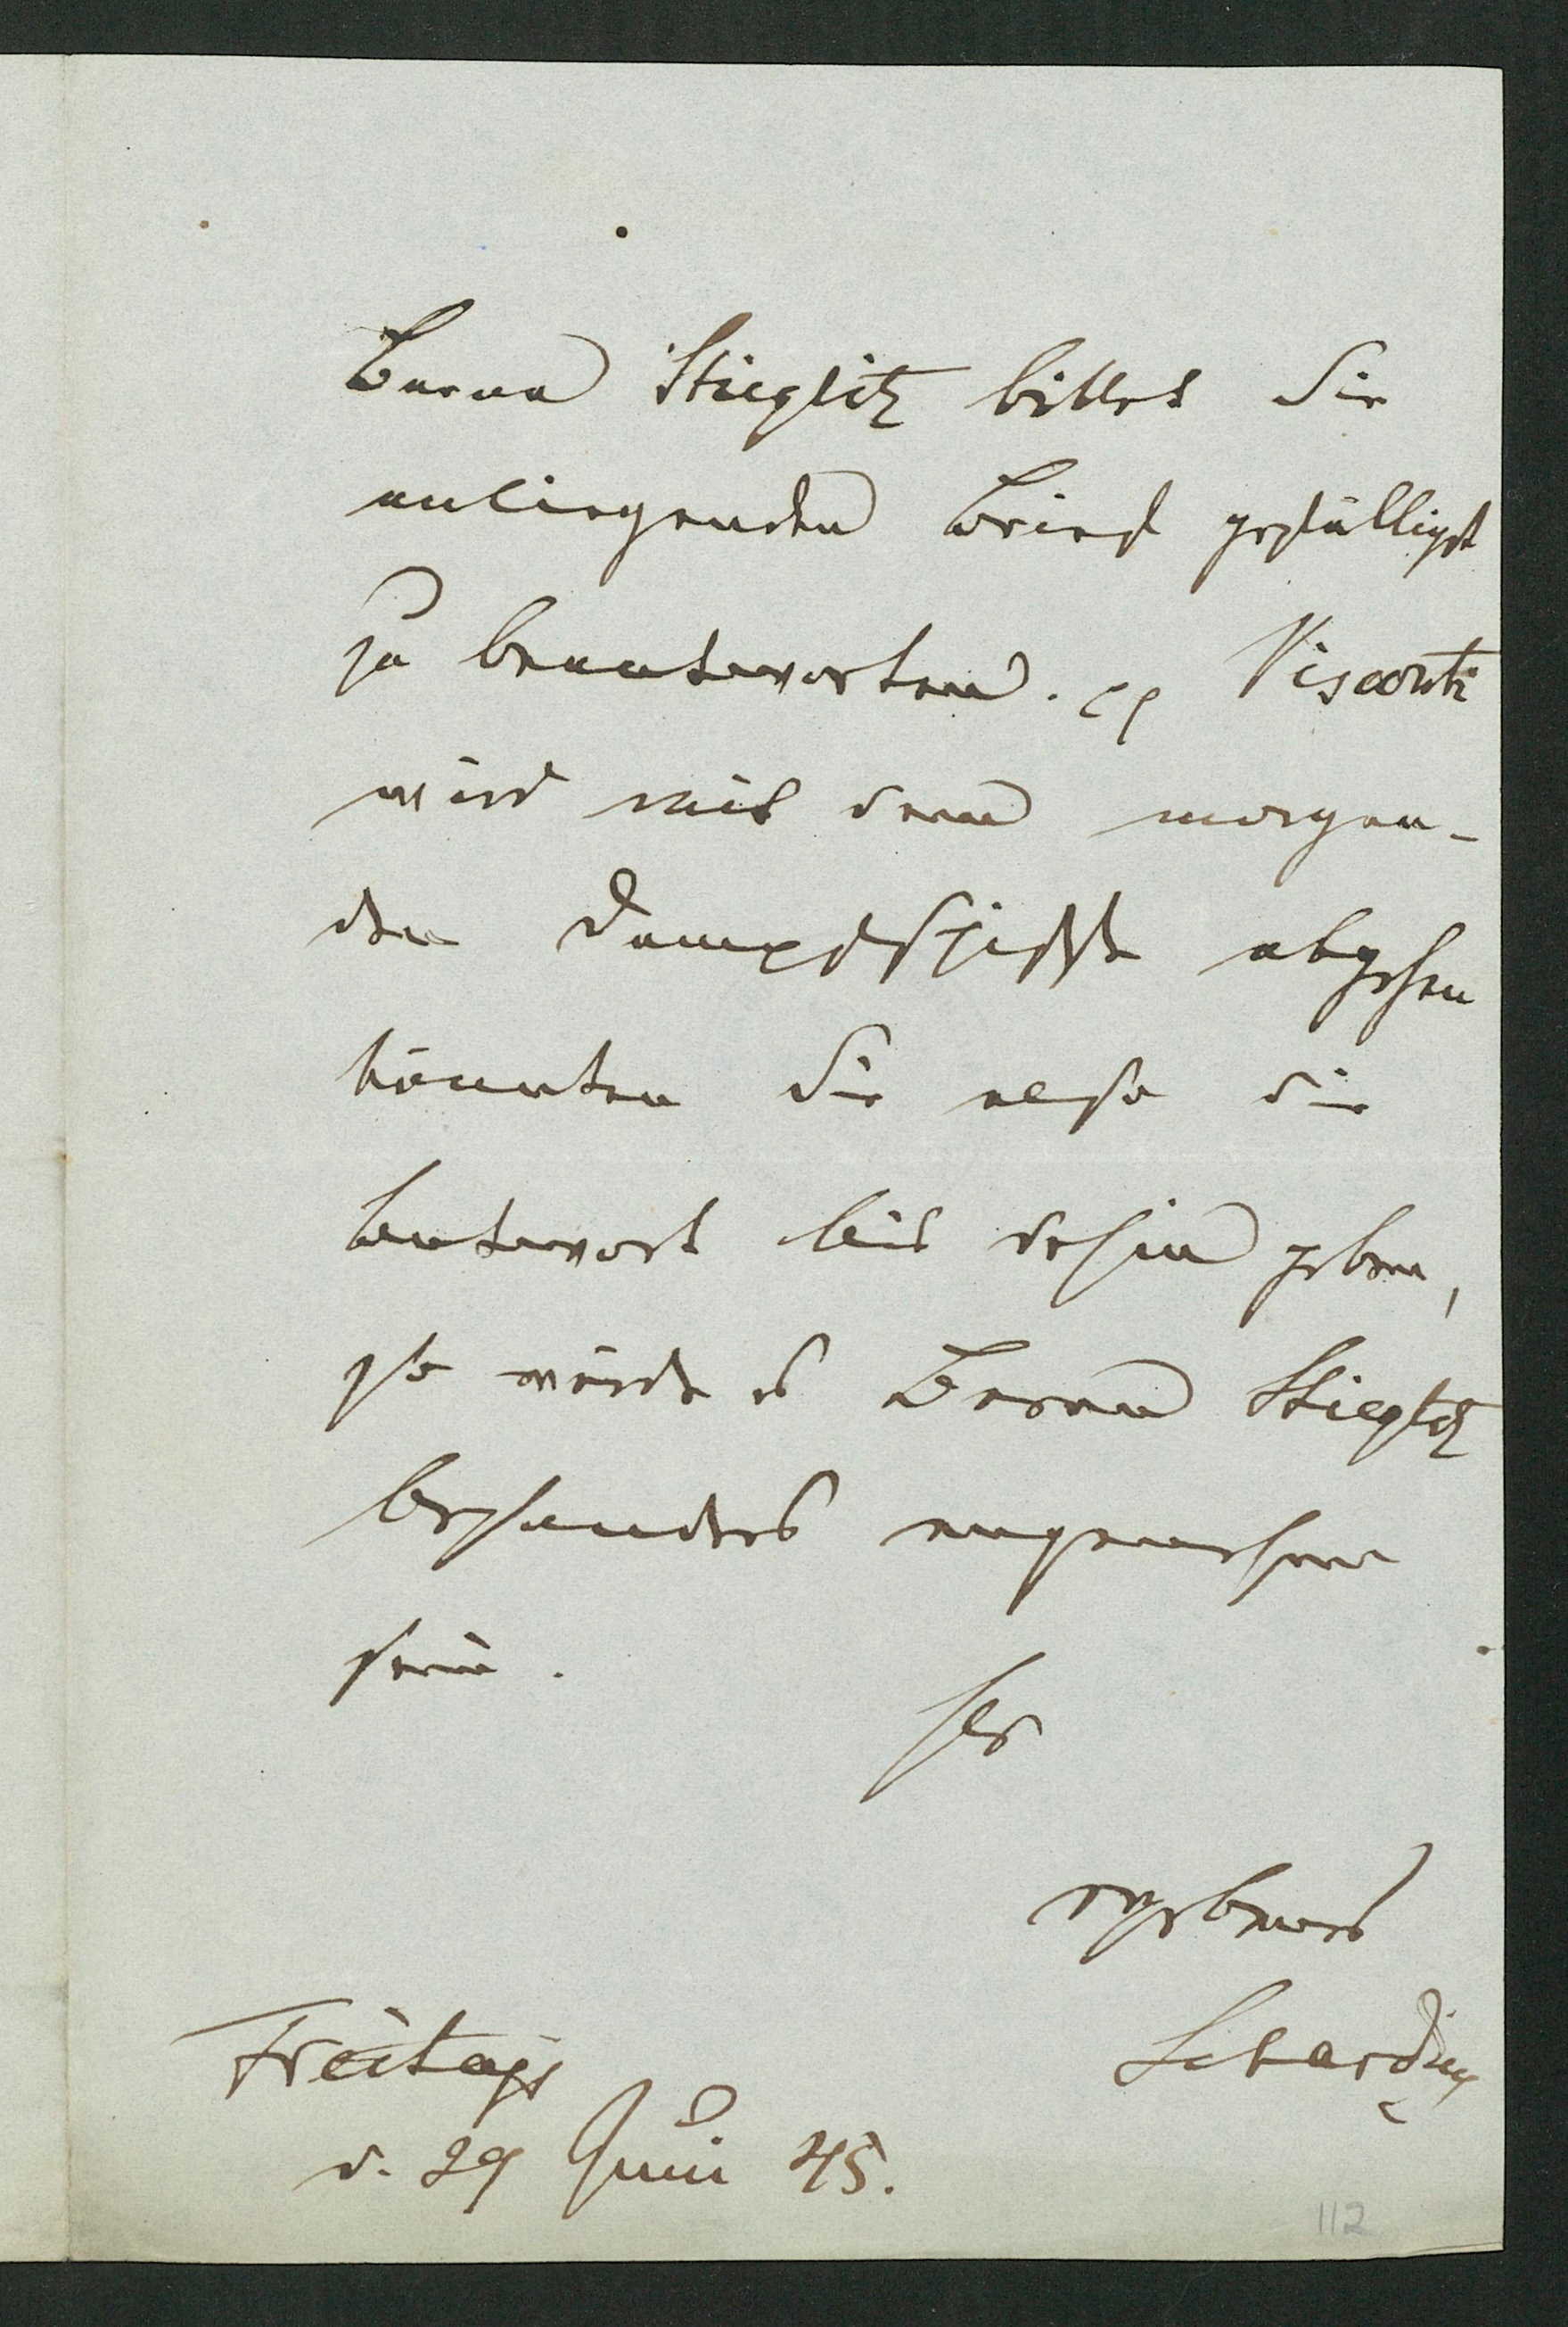 Baron Stieglitz bittet Sie
anliegenden Brief gefälligst
zu beantworten. pp Visconti
wird mit dem morgen-
den Dampfschiffe abgehen
könnten Sie also die
Antwort bis dahin geben,
so würde es Baron Stieglitz
besonders angenehm
sein.
Ihr
ergebener
Freitags
d. 29 Juni 45.
112